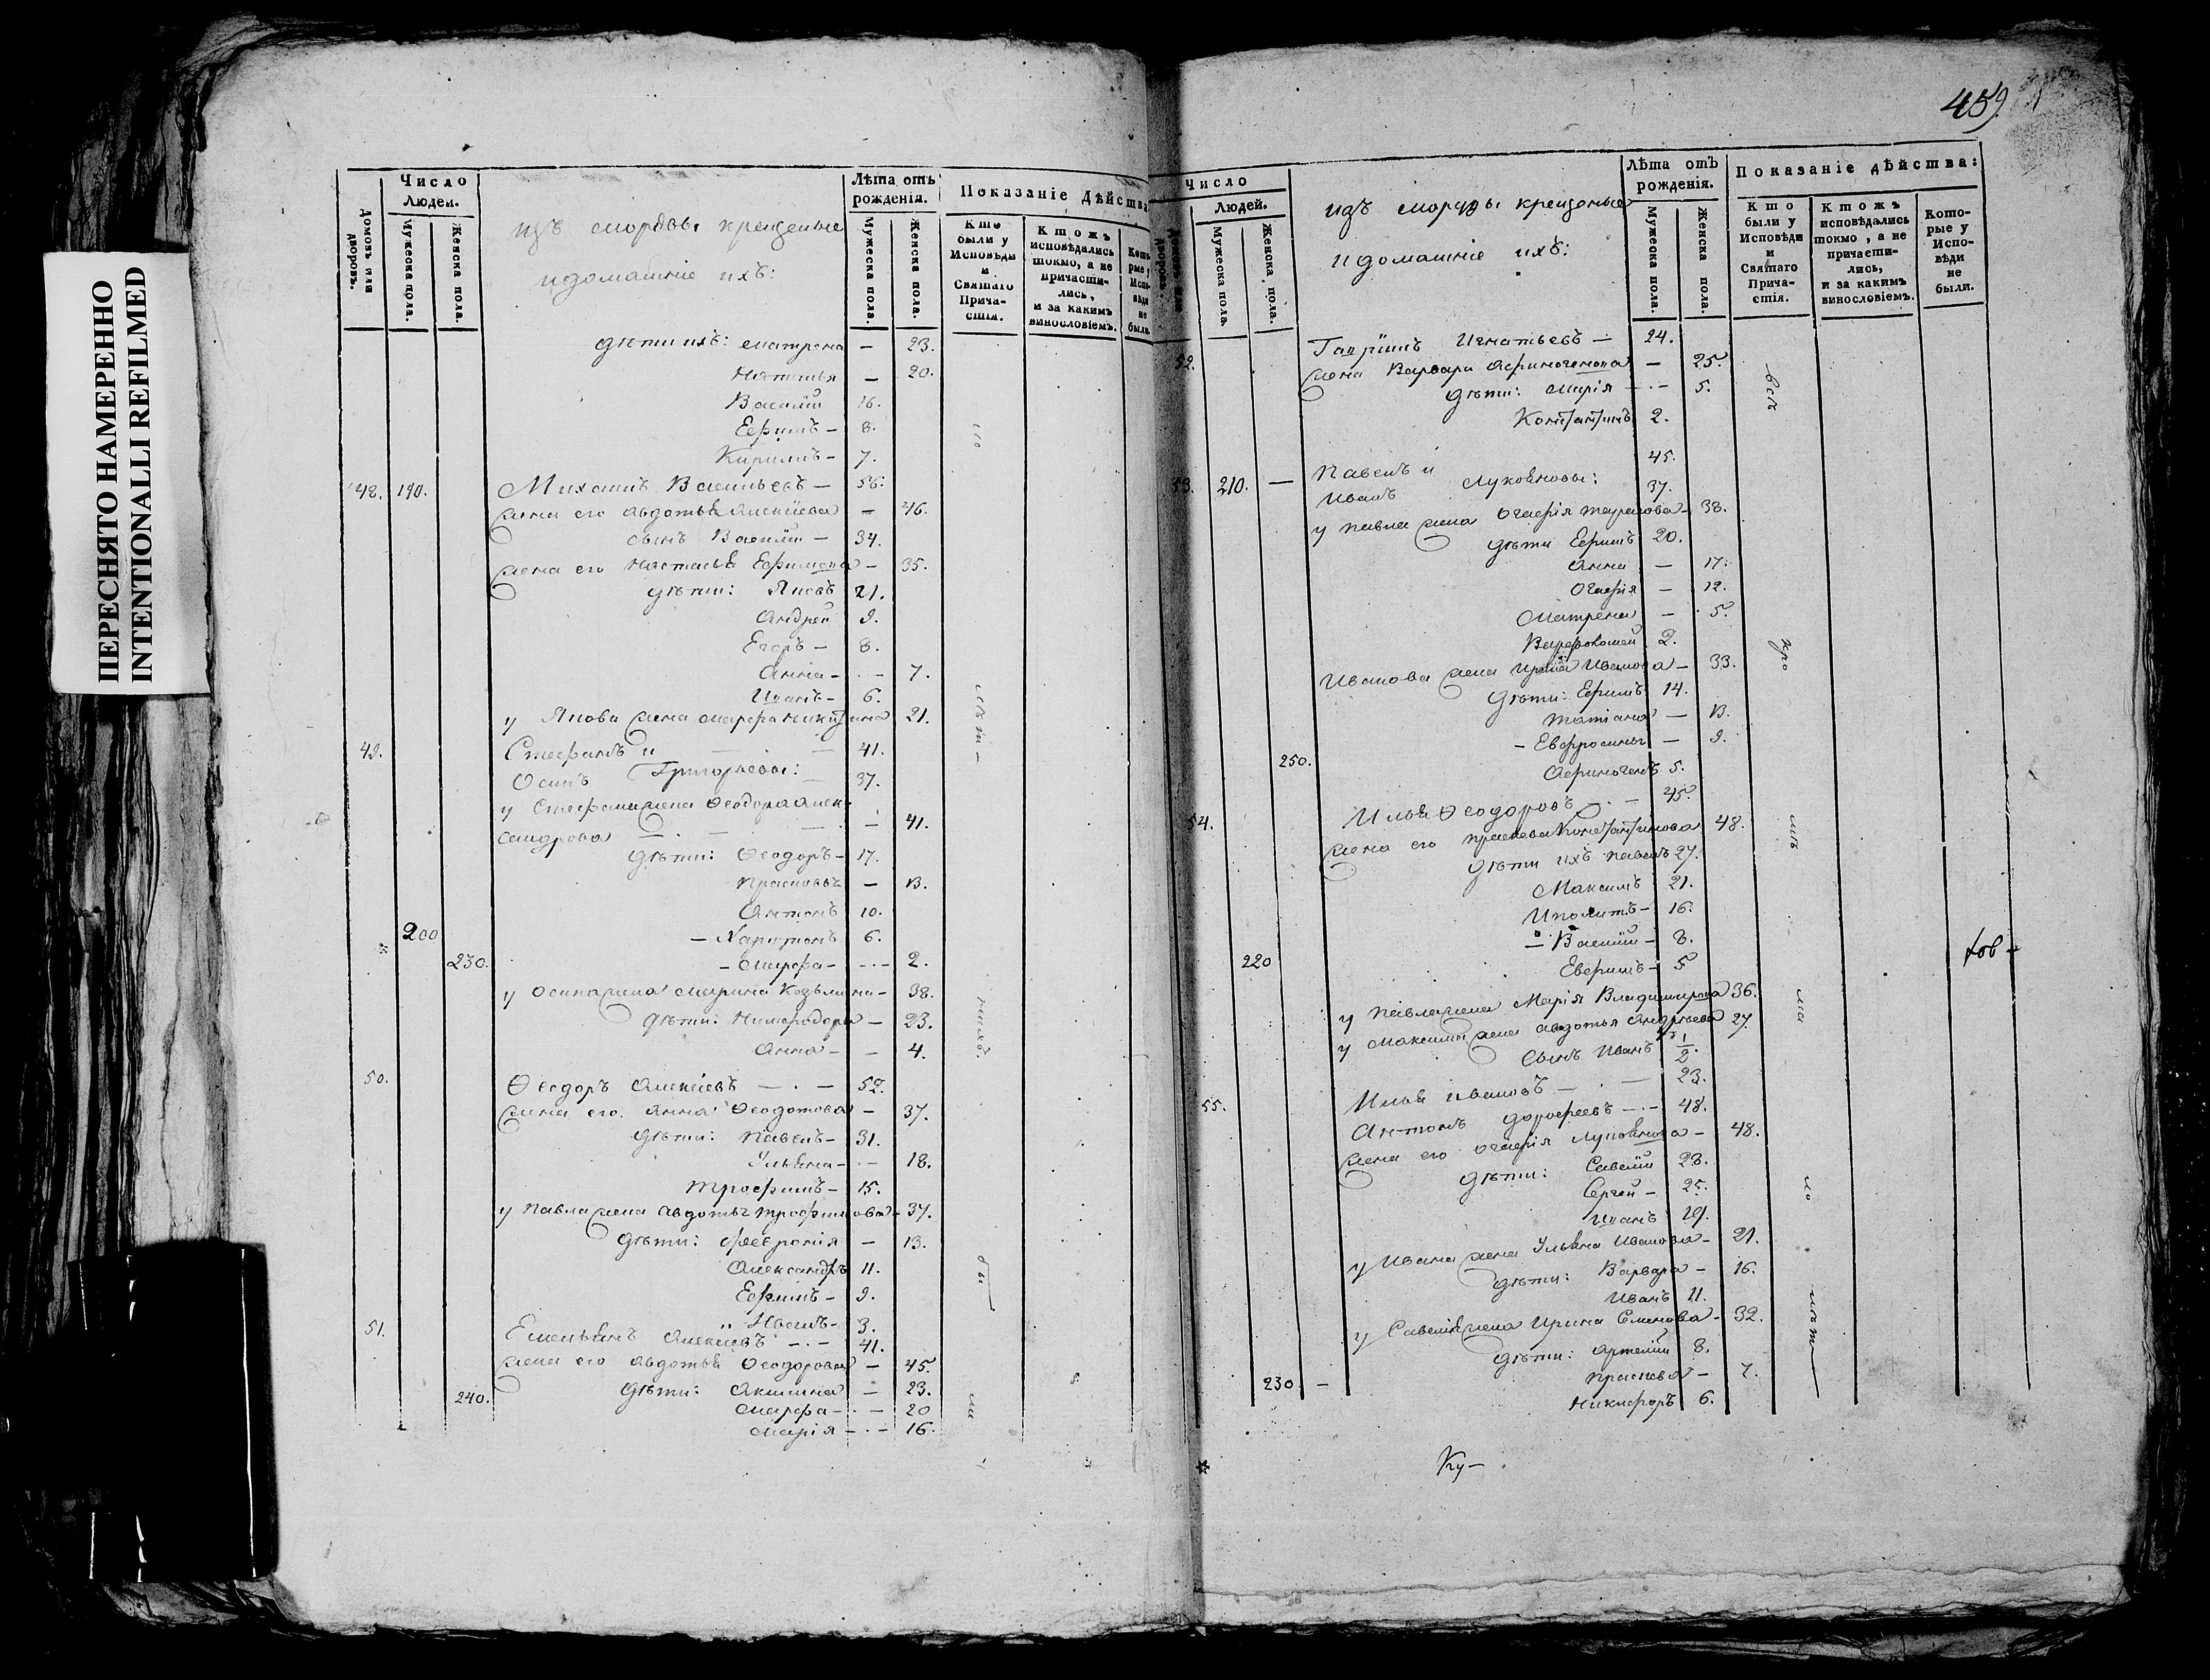 ПЕРЕСНЯТО НАМЕРЕННО
INTENTIONALLI REFILMED
Домовъ или дворовъ.
Число Людей.
Мужеска пола.
Женска пола.
изъ мордвы крещеные
и домашніе ихъ:
Лѣта отъ рожденія.
Мужеска пола.
Женска пола.
Показаніе дѣйства
Кто были у Исповѣди и Святаго Прича-стія.
Ктожъ исповѣдались токмо, а не причасти-лись, и за какимъ винословіемъ.
Кото-рые у Испо-вѣди не были.
дѣти ихъ: Матрена — 23.
Наталья — 20.
Василий 16.
Ефимъ — 8.
Кирилъ — 7.
48. 190. Михаилъ Васильевъ — 56.
жена его Авдотья Алексѣева — 46.
сынъ Василий — 34.
жена его Настасья Ефимова — 35.
дѣти: Яковъ 21.
Андрей 9.
Егоръ — 8.
Анна — 7.
Иванъ — 6.
у Якова жена Марфа Никитина 21.
49. Стефанъ и — 41.
Осипъ Григорьевы: 37.
у Стефана жена Ѳеодора Алек-
сандрова — 41.
дѣти: Ѳеодоръ — 17.
Прасковья — 13.
Антонъ 10.
200 — Харитонъ 6.
230. — Марфа — 2.
у Осипа жена Марина Козьмина — 38.
дѣти: Нимфодора — 23.
Анна — 4.
50. Ѳеодоръ Алексѣевъ — 52.
жена его Анна Ѳеодотова — 37.
дѣти: Павелъ — 31.
Ульяна — 18.
Трофимъ — 15.
у Павла жена Авдотья Трофимова — 37.
дѣти: Февронія — 13.
Александръ 11.
Ефимъ — 9.
Иванъ — 3.
51. Емельянъ Алексѣевъ — 41.
жена его Авдотья Ѳеодорова — 45.
240. дѣти: Акилина — 23.
Марфа — 20
Марія — 16.
459
Число Людей.
Мужеска пола.
Женска пола.
изъ мордвы крещеные
и домашніе ихъ:
Лѣта отъ рожденія.
Мужеска пола.
Женска пола.
Показаніе дѣйства:
Кто были у Исповѣди и Святаго Прича-стія.
Ктожъ исповѣдались токмо, а не причасти-лись, и за какимъ винословіемъ.
Кото-рые у Испо-вѣди не были.
52. Гавріилъ Игнатьевъ — 24.
жена Варвара Афиногенова — 25.
дѣти: Марія — 5.
Константинъ 2.
53. 210. — Павелъ и 45.
Иванъ Лукояновы: 37.
у Павла жена Гаврилова — 38.
дѣти Ефимъ 20.
Анна — 17.
12.
Матрена — 5.
Варфоломей 2.
Иванова жена Ирина Иванова — 33.
дѣти: Ефимъ 14.
Татіана — 13.
— Евфросинья — 9.
250. Афиногенъ 5.
54. Илья Ѳеодоровъ — 45.
жена его Прасковья Константинова 48.
дѣти ихъ Павелъ 27.
Максимъ 21.
Иполитъ — 16.
— Василий — 8.
220 Ефимъ — 5
у Павла жена Марія Владимирова 36.
у Максима жена Авдотья Андреева 27
сынъ Иванъ 1/2.
55. Илья Ивановъ — 23.
Антонъ Дорофеевъ — 48.
жена его Лукоянова — 48.
дѣти: Савелий 28.
Сергей — 25.
Иванъ 19.
у Ивана жена Ульяна Иванова — 21.
дѣти: Варвара — 16.
Иванъ 11.
у Савелия жена Ирина Семенова — 32.
дѣти: Артемий 8.
230 — Прасковья — 7.
Никифоръ 6.
Ку—